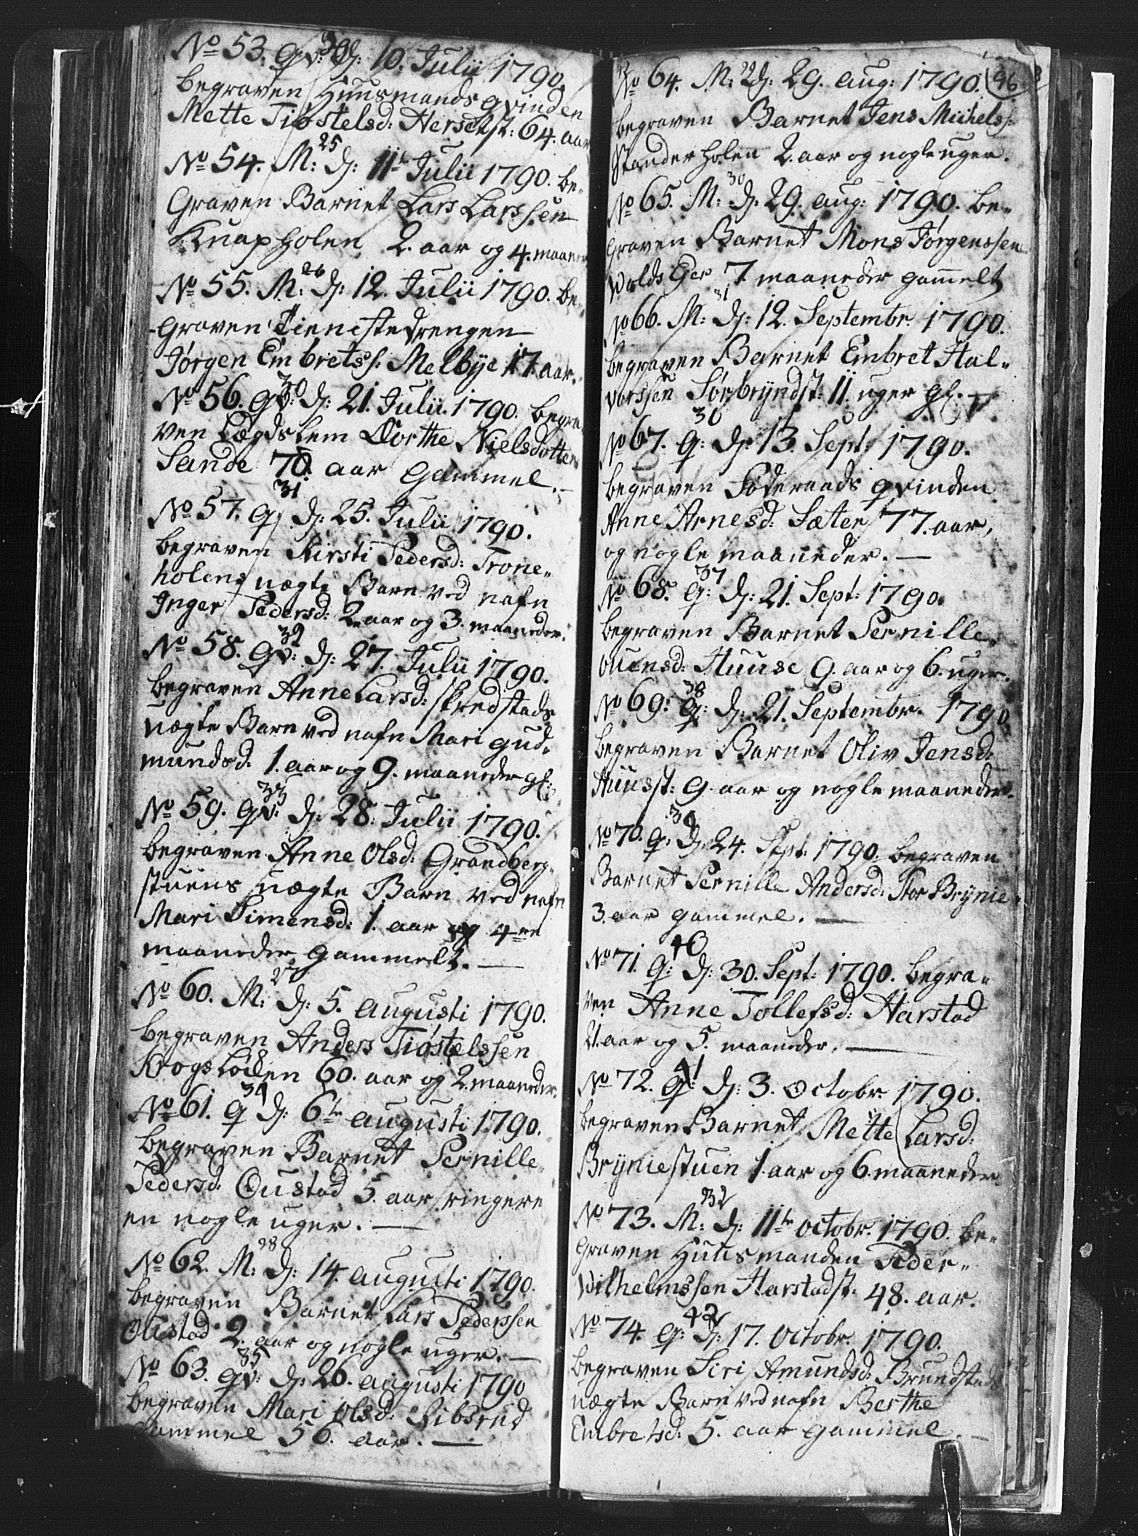 No 53. qv: 30 dj: 10. Julii 1790.
begraven Huusmands qvinden
Mette Tiøstelsd: Hersetst: 64. aar
No 54. M: 25 dj: 11te Julii 1790. be-
graven Barnet Lars Larssen
Knapholen 2. aar og 4. maaneder
No 55. M: 26 dj: 12. Julii 1790. be-
graven Tienestedrengen
Jørgen Embretss: Melbye 17 aar.
No 56. qv: 30 dj: 21. Julii 1790. begra-
ven Lægdslem Dorthe Nielsdotter
Sande 70. aar gammel.
No 57. q: 31 dj: 25. Julii 1790.
begraven Kirsti Pedersd: Trone-
holens uægte Barn ved nafn
Inger Pedersd: 2. aar og 3. maaneder.
No 58. qv: 32 dj: 27. Julii 1790.
begraven Anne Larsd: skredstads
uægte Barn ved nafn Mari gud-
mundsd: 1. aar og 9. maaneder gl:
No 59. qv: 33 dj: 28. Julii 1790.
begraven Anne Olsd: Grandberg-
stuens uægte Barn ved nafn
Mari Simensd: 1. aar og 4re
maaneder gammelt.
No 60. M: 27 dj: 5. augusti 1790.
begraven Anders Tiøstelssen
Krogsløkken 60. aar og 2. maaneder.
No 61. q: 34 dj: 6te augusti 1790.
begraven Barnet Pernille
Pedersd: Oustad 5. aar ringere
en nogle uger.
No 62. M: 28 dj: 14. augusti 1790.
begraven Barnet Lars Pederssen
Oustad 2. aar og nogle uger.
No 63. qv: 35 dj: 26. augusti 1790
begraven Mari Olsd: Ribsrud
Gammel 56. aar.
96
No 64. M: 29 dj: 29. aug: 1790.
begraven Barnet Jens Michelss:
Standerholen 2. aar og nogle uger.
No 65. M: 30 dj: 29. aug: 1790. be-
graven Barnet Mons Jørgenssen
Wolds Eer 7 maaneder gammelt
No 66. M: 31 dj: 12. Septembr: 1790.
begraven Barnet Embret Hal-
vorssen Sorbryndst: 11 uger gl.
No 67. q: 36 dj: 13. Sept: 1790.
begravenFøderaads qvinden
Anne Arnesd: Sæter 77. aar,
og nogle maaneder.
No 68. q: 37 dj: 21. Sept: 1790.
begraven Barnet Pernille
ouensd: Huuse 9. aar og 6. uger.
No 69: q: 38 dj: 21. Septembr: 1790
begraven Barnet Oliv Jensd:
Huusst: 9. aar og nogle maaneder.
No 70. q: 39 dj: 24. Sept: 1790. begraven
Barnet Pernille Andersd: Stor Brynie
3. aar gammel.
No 71. q: 40 dj: 30. Sept: 1790. begra-
ven Anne Tollefsd: Harstad
aar og 5. maaneder.
No 72. q: 41 dj: 3. Octobr: 1790.
begraven Barnet Mette Larsd:
Bryniestuen 1. aar og 6. maaneder
No 73. M: 32 dj: 11te octobr: 1790. be-
graven Huusmanden Peder
Wilhelmssen Harstadst: 48. aar.
No 74. q: 42 dj: 17. Octobr: 1790.
begraven Siri Amundsd: Brundstad
uægte Barn ved nafn Berthe
Embretsd: 5. aar gammel.